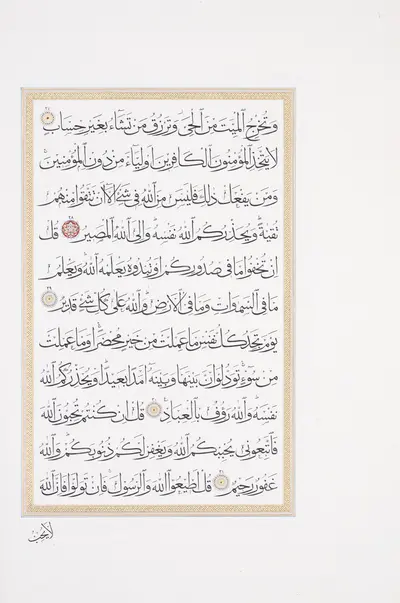 وَتُخْرِجُ الْمَيِّتَ مِنَ الْحَيِّ وَتَرْزُقُ مَنْ تَشَاءُ بِغَيْرِ حِسَابٍ
لَا يَتَّخِذِ الْمُؤْمِنُونَ الْكَافِرِينَ أَوْلِيَاءَ مِنْ دُونِ الْمُؤْمِنِينَ
وَمَنْ يَفْعَلْ ذَلِكَ فَلَيْسَ مِنَ اللَّهِ فِي شَيْءٍ إِلَّا أَنْ تَتَّقُوا مِنْهُمْ
تُقَاةً وَيُحَذِّرُكُمُ اللَّهُ نَفْسَهُ وَإِلَى اللَّهِ الْمَصِيرُ قُلْ
إِنْ تُخْفُوا مَا فِي صُدُورِكُمْ أَوْ تُبْدُوهُ يَعْلَمْهُ اللَّهُ وَيَعْلَمُ
مَا فِي السَّمَوَاتِ وَمَا فِي الْأَرْضِ وَاللَّهُ عَلَى كُلِّ شَيْءٍ قَدِيرٌ
يَوْمَ تَجِدُ كُلُّ نَفْسٍ مَا عَمِلَتْ مِنْ خَيْرٍ مُحْضَرًا وَمَا عَمِلَتْ
مِنْ سُوءٍ تَوَدُّ لَوْ أَنَّ بَيْنَهَا وَبَيْنَهُ أَمَدًا بَعِيدًا وَيُحَذِّرُكُمُ اللَّهُ
نَفْسَهُ وَاللَّهُ رَؤُفٌ بِالْعِبَادِ قُلْ إِنْ كُنْتُمْ تُحِبُّونَ اللَّهَ
فَاتَّبِعُونِي يُحْبِبْكُمُ اللَّهُ وَيَغْفِرْ لَكُمْ ذُنُوبَكُمْ وَاللَّهُ
غَفُورٌ رَحِيمٌ قُلْ أَطِيعُوا اللَّهَ وَالرَّسُولَ فَإِنْ تَوَلَّوْا فَإِنَّ اللَّهَ
لَا يُحِبُّ